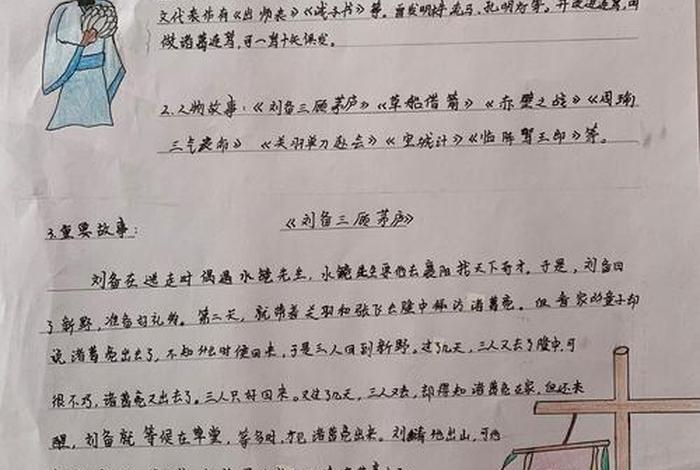 文代表作有《出师表》《诫子书》等。曾发明木牛流马、孔明灯等。并改进连弩,叫
做诸葛连弩,可一弩十矢俱发。
2.人物故事:《刘备三顾茅庐》《草船借箭》《赤壁之战》《周瑜
三气 》《关羽单刀赴会》《空城计》《临阵骂王郎》等。
3.重要故事: 《刘备三顾茅庐》
刘备在逃走时偶遇水镜先生,水镜先生要他去襄阳找天下奇才。于是,刘备回
了新野,准备好礼物。第二天,就带着关羽和张飞去隆中拜访诸葛亮。但看家的童子却
说诸葛亮出去了,不知什么时候回来,于是三人回到新野。过了几天,三人又去了隆中,可
很不巧,诸葛亮又出去了。三人只好回来。又过了几天,三人又去,却得知诸葛亮在家,但还未
醒,刘备就等候在草堂,等多时,才见诸葛亮出来。刘 他出山,可他